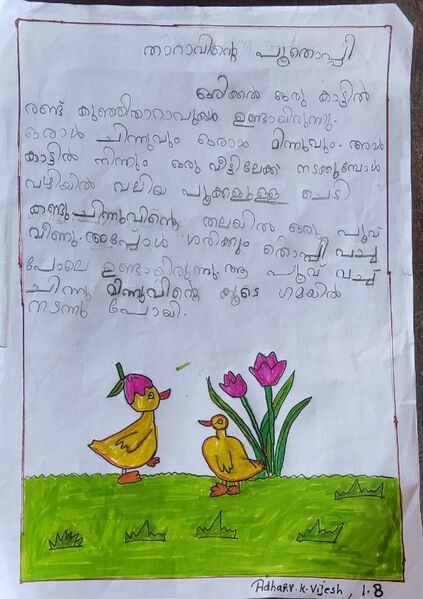 താറാവിന്റെ പൂതൊപ്പി
ഒരിക്കൽ ഒരു കാട്ടിൽ
രണ്ട് കുഞ്ഞിതാറാവുകൾ ഉണ്ടായിരുന്നു.
ഒരാൾ ചിന്നുവും ഒരാൾ മിന്നുവും. അവർ
കാട്ടിൽ നിന്നും ഒരു വീട്ടിലേക്ക് നടക്കുമ്പോൾ
വഴിയിൽ വലിയ പൂക്കളുള്ള ചെടി
കണ്ടു ചിന്നുവിന്റെ തലയിൽ ഒരു പൂവ്
വീണു. അപ്പോൾ ശരിക്കും തൊപ്പി വച്ച
പോലെ ഉണ്ടായിരുന്നു. ആ പൂവ് വച്ച്
ചിന്നു മിന്നുവിന്റെ കൂടെ ഗമയിൽ
നടന്നു പോയി.
Adharv.K.Vijesh, 1.8